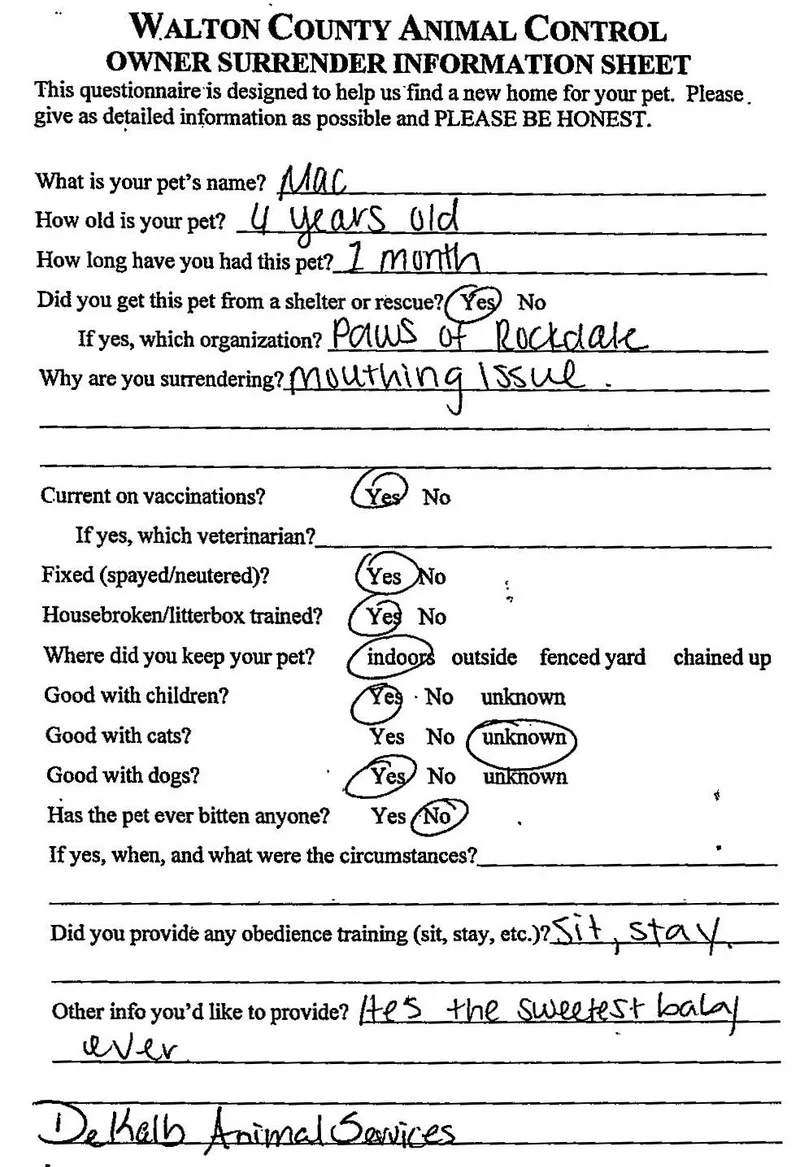 WALTON COUNTY ANIMAL CONTROL
OWNER SURRENDER INFORMATION SHEET
This questionnaire is designed to help us find a new home for your pet. Please
give as detailed information as possible and PLEASE BE HONEST.
What is your pet's name? Mac
How old is your pet? 4 years old
How long have you had this pet? 1 month
Did you get this pet from a shelter or rescue? Yes No
If yes, which organization? Paws of Rockdale
Why are you surrendering? mouthing issue.
Current on vaccinations? Yes No
If yes, which veterinarian?
Fixed (spayed/neutered)? Yes No
Housebroken/litterbox trained? Yes No
Where did you keep your pet? indoors outside fenced yard chained up
Good with children? Yes No unknown
Good with cats? Yes No unknown
Good with dogs? Yes No unknown
Has the pet ever bitten anyone? Yes No
If yes, when, and what were the circumstances?
Did you provide any obedience training (sit, stay, etc.)? Sit, stay.
Other info you'd like to provide? He's the sweetest baby
ever
DeKalb Animal Services